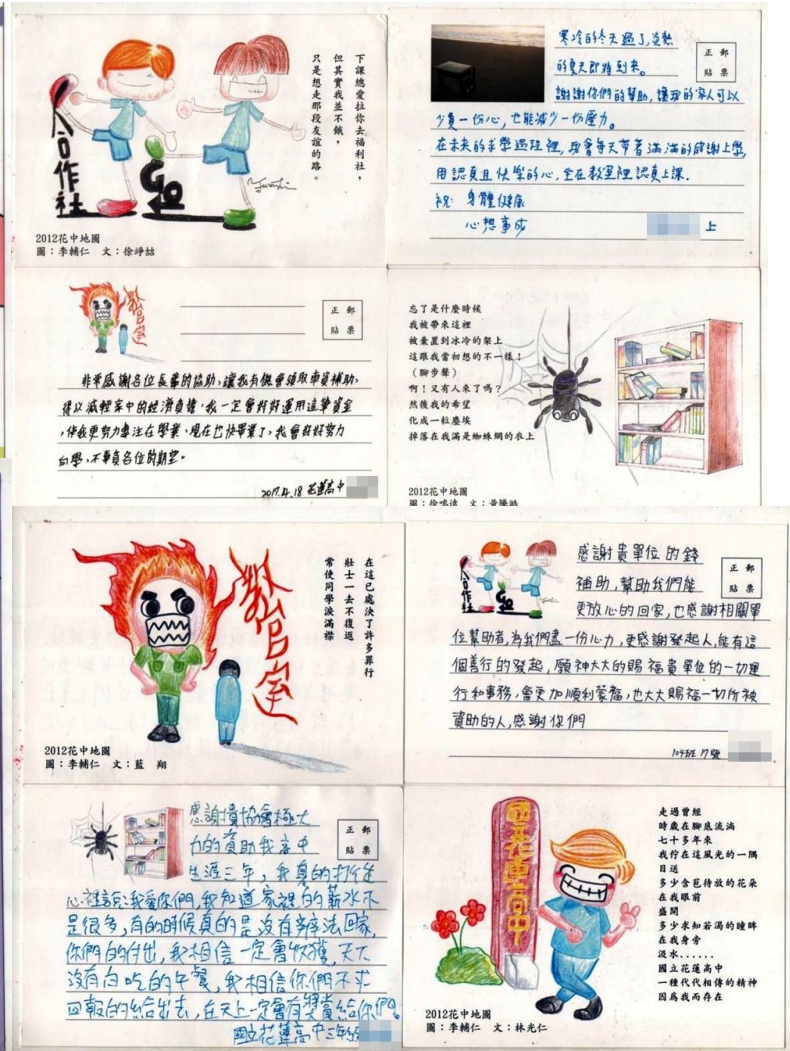 下課總愛拉你去福利社，
但其實我並不餓，
只是想走那段友誼的路。
合作社
Go
2012花中地圖
圖：李輔仁 文：徐崢喆
正 郵
貼 票
寒冷的冬天過了,炎熱
的夏天即將到來。
謝謝你們的幫助,讓我的家人可以
少責一份心,也能減少一份壓力。
在未來的求學過程裡,我會每天帶著滿滿的感謝上學,
用認真且快樂的心,坐在教室裡認真上課.
祝: 身體健康
心想事成
上
教官室
正 郵
貼 票
非常感謝各位長輩的協助,讓我有機會領取車資補助,
得以減輕家中的經濟負擔,我一定會好好運用這筆資金,
使我更努力專注在學業,現在也快畢業了,我會好好努力
向學,不辜負各位的期望。
2017.4.18 花蓮高中
忘了是什麼時候
我被帶來這裡
被棄置到冰冷的架上
這跟我當初想的不一樣！
（腳步聲）
啊！又有人來了嗎？
然後我的希望
化成一粒塵埃
掉落在我滿是蜘蛛網的衣上
2012花中地圖
教官室
在這已處決了許多罪行
壯士一去不復返
常使同學淚滿襟
2012花中地圖
圖：李輔仁 文：藍 翔
合作社
Go
正 郵
貼 票
感謝貴單位的錢
補助,幫助我們能
更放心的回家,也感謝相關單
位幫助者,為我們盡一份心力,更感謝發起人,能有這
個善行的發起,願神大大的賜福貴單位的一切運
行和事務,會更加順利蒙福,也大大賜福一切所被
資助的人,感謝你們
17號
正 郵
貼 票
感謝貴協會極大
力的資助我高中
生涯三年,我真的打從
心裡說:我愛你們,我知道家裡的薪水不
是很多,有的時候真的是沒有辦法回家,
你們的付出,我相信一定會收獲,天下
沒有白吃的午餐,我相信你們不求
回報的給出去,在天上一定會有獎賞給你們。
國立花蓮高中三年
國立花蓮高中
走過曾經
時歲在腳底流淌
七十多年來
我佇在這風光的一隅
目送
多少含苞待放的花朵
在我眼前
盛開
多少求知若渴的瞳眸
在我身旁
汲水......
國立花蓮高中
一種代代相傳的精神
因為我而存在
2012花中地圖
圖：李輔仁 文：林光仁